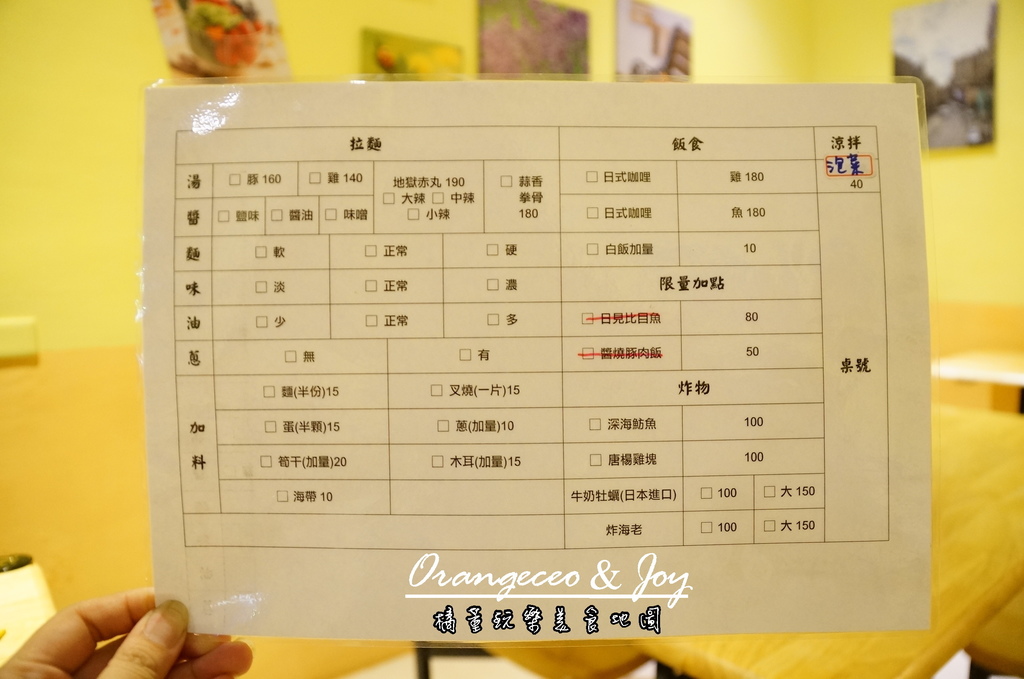 拉麵 飯食 涼拌
湯 □ 豚 160 □ 雞 140 地獄赤丸 190 □ 蒜香 □ 日式咖哩 雞 180 泡菜
□ 大辣 □ 中辣 拳骨 40
醬 □ 鹽味 □ 醬油 □ 味噌 □ 小辣 180 □ 日式咖哩 魚 180
麵 □ 軟 □ 正常 □ 硬 □ 白飯加量 10
味 □ 淡 □ 正常 □ 濃 限量加點
油 □ 少 □ 正常 □ 多 □ 日見比目魚 80
蔥 □ 無 □ 有 □ 醬燒豚肉飯 50 桌號
□ 麵(半份)15 □ 叉燒(一片)15 炸物
加 □ 蛋(半顆)15 □ 蔥(加量)10 □ 深海魴魚 100
料 □ 筍干(加量)20 □ 木耳(加量)15 □ 唐楊雞塊 100
□ 海帶 10 牛奶牡蠣(日本進口) □ 100 □ 大 150
炸海老 □ 100 □ 大 150
Orangeceo & Joy
橘童玩樂美食地圖